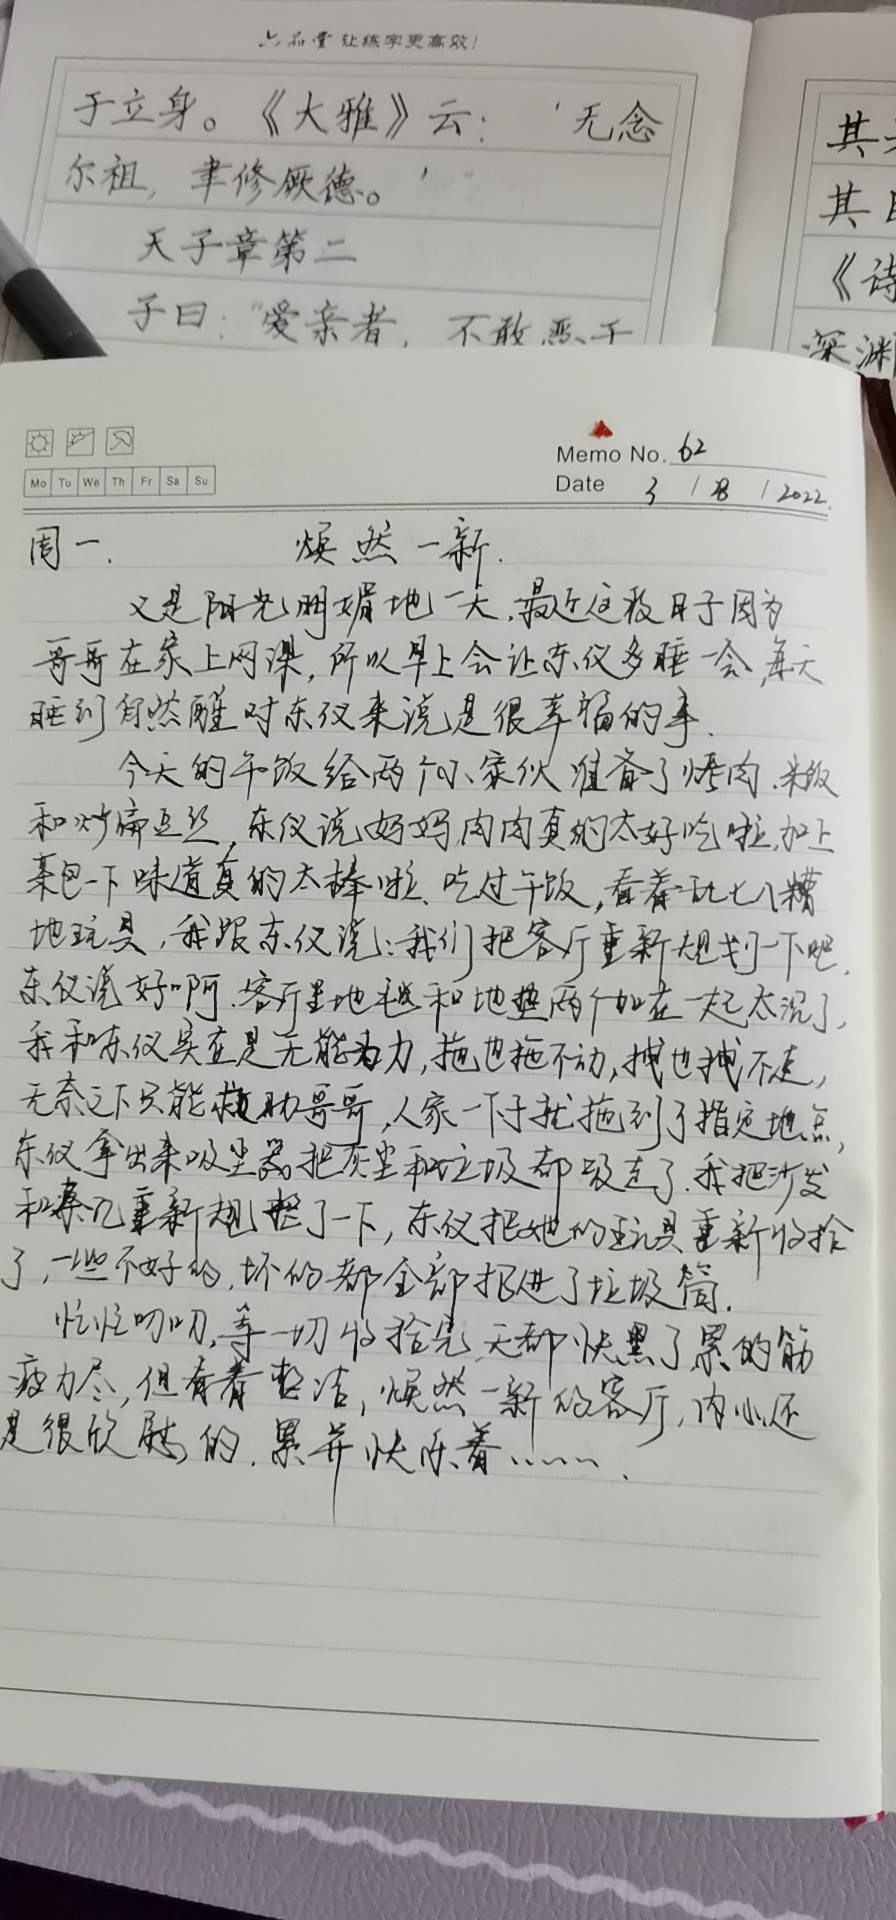 六品堂 让练字更高效!
于立身。《大雅》云:‘无念
尔祖,聿修厥德。’
天子章第二
子曰:“爱亲者,不敢恶于
其
其
《诗
深渊
Memo No. 62
Mo Tu We Th Fr Sa Su
Date 3 / 28 / 2022.
周一. 焕然一新.
又是阳光明媚地一天,最近这段日子因为
哥哥在家上网课,所以早上会让东仪多睡一会,每天
睡到自然醒对东仪来说是很幸福的事.
今天的午饭给两个小家伙准备了烤肉.米饭
和炒扁豆丝,东仪说妈妈,肉肉真的太好吃啦,加上
菜包一下味道真的太棒啦.吃过午饭,看着乱七八糟
地玩具,我跟东仪说:我们把客厅重新规划一下吧.
东仪说好啊.客厅里地毯和地垫两个加在一起太沉了,
我和东仪实在是无能为力,拖也拖不动,拽也拽不走,
无奈之下只能救助哥哥,人家一下子就拖到了指定地点,
东仪拿出来吸尘器把灰尘和垃圾都吸走了.我把沙发
和茶几重新规整了一下,东仪把她的玩具重新收拾
了,一些不好的,坏的都全部扔进了垃圾筒.
忙忙叨叨,等一切收拾完,天都快黑了,累的筋
疲力尽,但看着整洁,焕然一新的客厅,内心还
是很欣慰的.累并快乐着…….